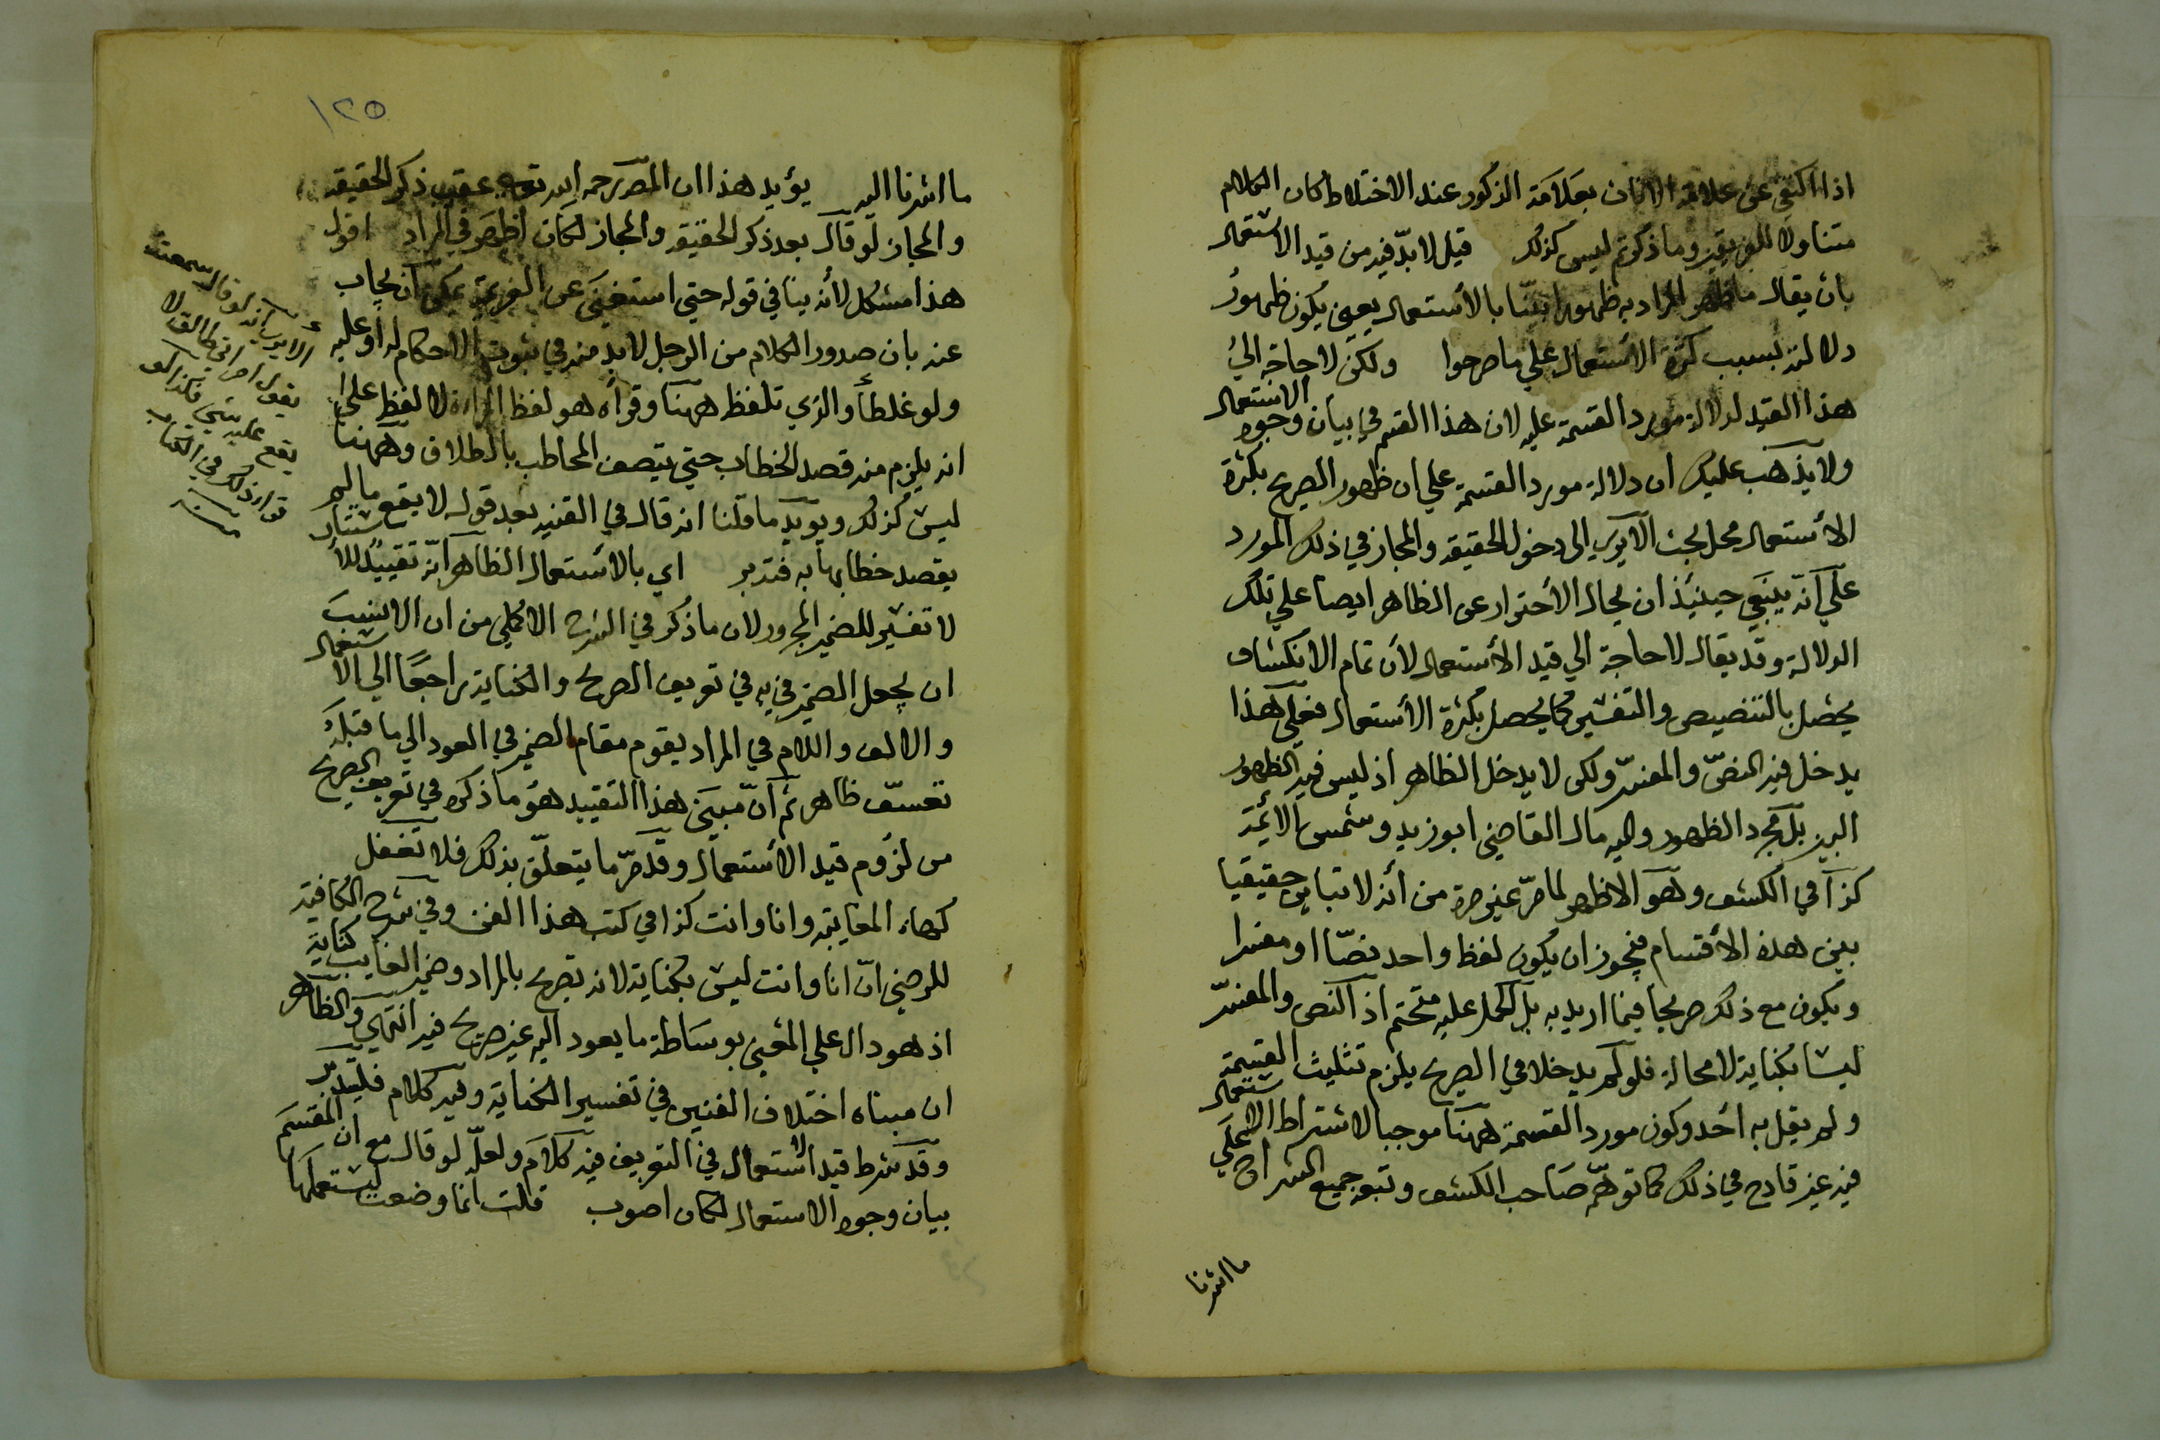 اذا اكتفى عن علامة الاناث بعلامة الذكور عند الاختلاط كان الكلام
متناولا للفريقين وما ذكرتم ليس كذلك قيل لابدّ فيه من قيد الاستعمال
بان يقال ما ظهر المراد به ظهورا بيّنا بالاستعمال يعني يكون ظهور
دلالته بسبب كثرة الاستعمال على ما صرحوا ولكن لا حاجة الى
هذا القيد لدلالة مورد القسمة عليه لان هذا القسم في بيان وجوه الاستعمال
ولا يذهب عليك ان دلالة مورد القسمة على ان ظهور الصريح بكثرة
الاستعمال محل بحث الا يرى الى دخول الحقيقه والمجاز في ذلك المورد
على انّه ينبغي حينئذ ان يحال الاحتراز عن الظاهر ايضا على تلك
الدلالة وقد يقال لا حاجة الى قيد الاستعمال لان تمام الانكشاف
يحصل بالتنصيص والتفسير كما يحصل بكثرة الاستعمال فعلى هذا
يدخل فيه النصّ والمفسّر ولكن لا يدخل الظاهر اذ ليس فيه الظهور
البين بل مجرد الظهور واليه مال القاضي ابو زيد وشمس الائمة
كذا في الكشف وهو الاظهر لما مرّ غير مرة من انه لا تباين حقيقيا
بين هذه الاقسام فيجوز ان يكون لفظ واحد نصّا او مفسرا
ويكون مع ذلك صريحا فيما اريد به بل الحمل عليه متحتم اذ النص والمفسّر
ليسا بكناية لا محالة فلو لم يدخلا في الصريح يلزم تثليث القسمة
ولم يقل به احد وكون مورد القسمة ههنا موجبا لاشتراط الاستعمال
فيه غير قادح في ذلك كما توهّم صاحب الكشف وتبعه جميع الشراح على
ما اشرنا
١٢٥
ما اشرنا اليه يؤيد هذا ان المصـ رحمه عقيب ذكر الحقيقه
والمجاز لو قال بعد ذكر الحقيقه والمجاز لكان اظهر في المراد اقول
هذا مشكل لأنه ينافي قوله حتى استغنى عن العزيمة يمكن ان يجاب
عنه بان صدور الكلام من الرجل لا بد منه في ثبوت الاحكام له او عليه
ولو غلطاً والذي تلفظ ههنا وقراه هو لفظ المراة لا لفظ على
انه يلزم منه قصد الخطاب حتى يتصف المخاطب بالطلاق وههنا
ليس كذلك ويويد ما قلنا انه قال في القنيه بعد قوله لا يقع مالم
يقصد خطابها به فتدبر اي بالاستعمال الظاهر انّه تقييد للاستتار
لا تفسير للضمير المجرور لان ما ذكر في الشرح الاكملي من ان الانسب
ان يجعل الضمير في به في تعريف الصريح والكناية راجعا الى الاستعمال
والالف واللام في المراد يقوم مقام الضمير في العود الى ما قبله
تعسّف ظاهر ثم انّ مبنى هذا التقييد هو ما ذكره في تعريف الصريح
من لزوم قيد الاستعمال وقد مرّ ما يتعلّق بذلك فلا تغفل
كهاء المغايبة وانا وانت كذا في كتب هذا الفن وفي شرح الكافية
للرضي انّ انا وانت ليس بكناية لانه تصريح بالمراد وضمير الغايب كناية
اذ هو دال على المعنى بوساطة ما يعود اليه غير صريح فيه انتهى والظاهر
ان مبناه اختلاف الفنين في تفسير الكناية وفيه كلام فليتدبر
وقد شرط قيد الاستعمال في التعريف فيه كلام ولعلّه لو قال مع ان المقسم
بيان وجوه الاستعمال لكان اصوب قلت انما وضعت ليستعملها
ألا يرى انه لو قال سمعت
يقول امراتي طالق لا
يقع عليه شي فكذا لو
قراء ذلك في الكتاب